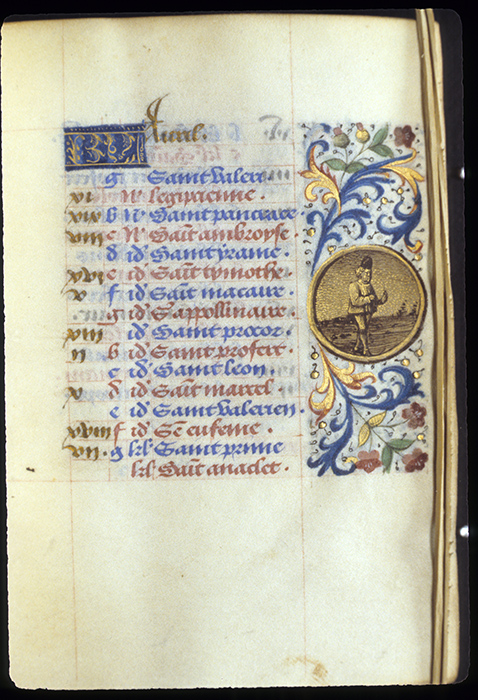 Kl Auril.
g Saint Valeri
xi N legipcienne.
xix b N Saint pancrace.
viii c N Sait ambroyse.
d id Saint yrame.
xvi e id Sait tymothe.
v f id Sait macaire.
g id S appollinaire.
xiii id Saint procor.
ii b id Saint profert.
c id Saint leon.
x d id Sait marcel
e id Saint Valerien.
xviii f id Se eufeme.
vii. g kl Saint prime
kl Sait anaclet.